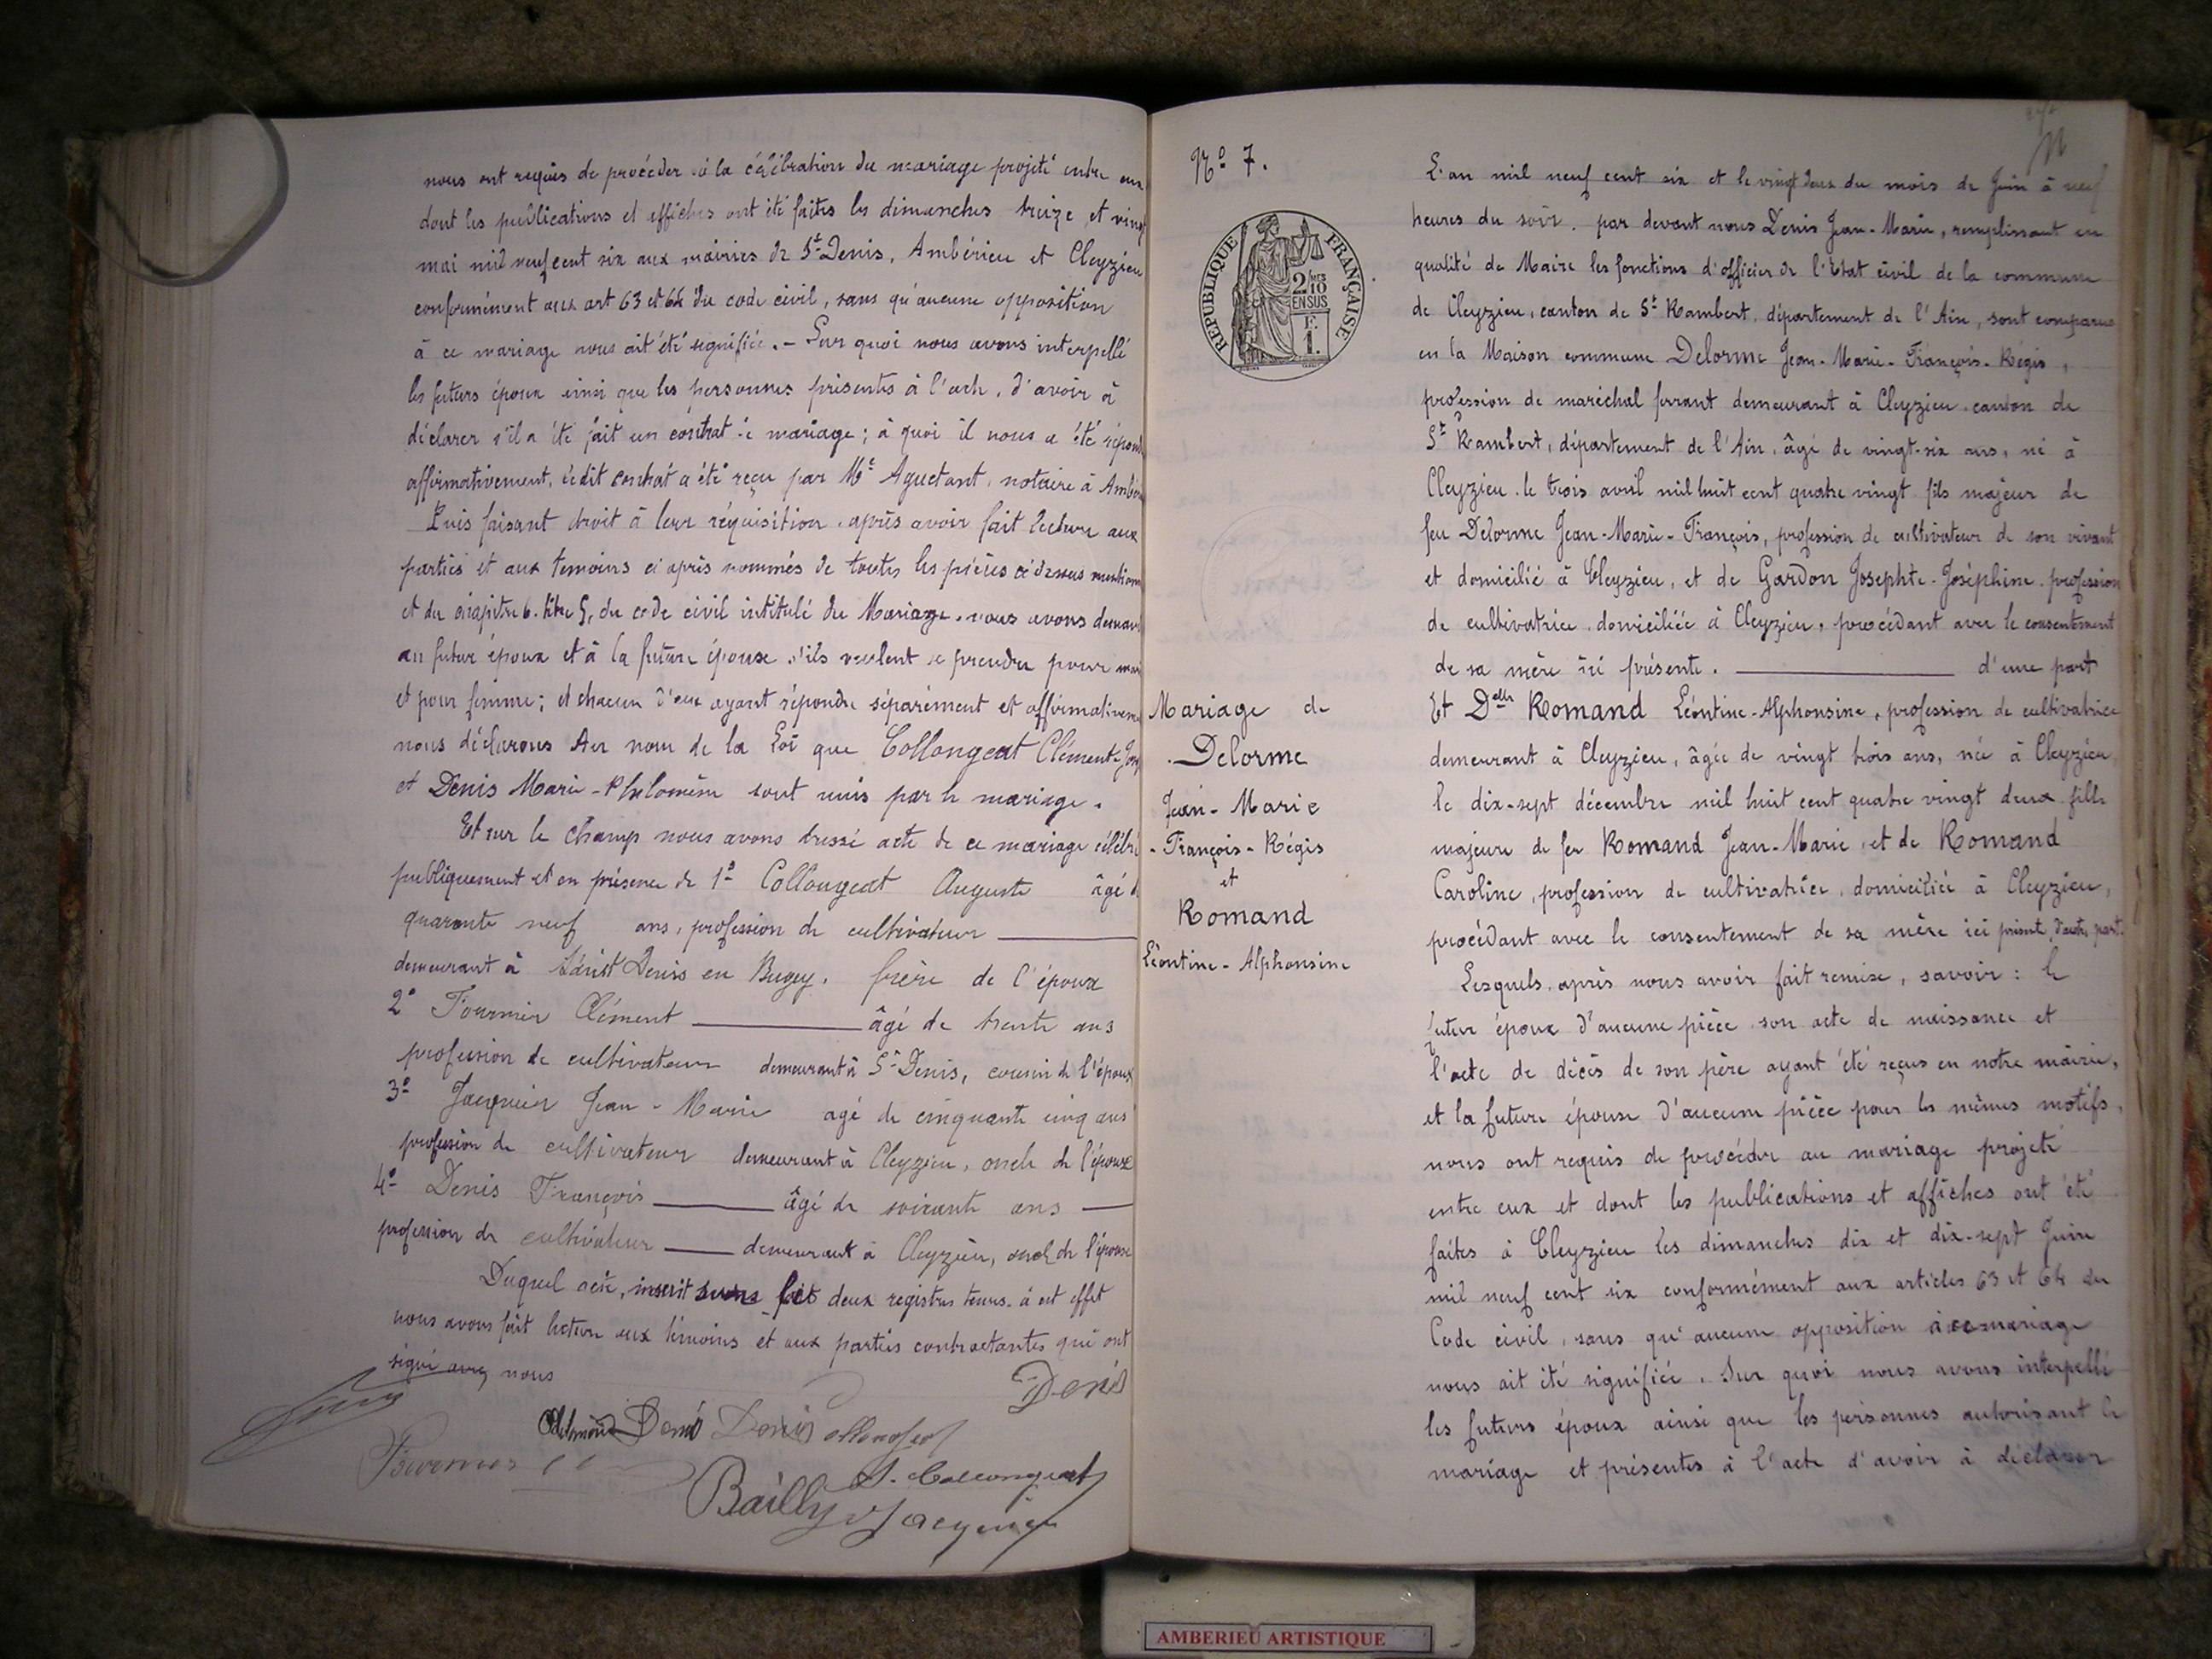 nous ont requis de procéder à la célébration du mariage projeté entre eux
dont les publications et affiches ont été faites les dimanches treize et vingt
mai mil neuf cent six aux mairies de St Denis, Ambérieu et Cleyzieu
conformément aux art 63 et 64 du code civil, sans qu'aucune opposition
à ce mariage nous ait été signifiée. - Sur quoi nous avons interpellé
les futurs époux ainsi que les personnes présentes à l'acte, d'avoir à
déclarer s'il a été fait un contrat de mariage ; à quoi il nous a été répondu
affirmativement, ledit contrat a été reçu par Me Aguetant, notaire à Ambér
Puis faisant droit à leur réquisition, après avoir fait lecture aux
parties et aux temoins ci après nommés de toutes les pièces ci dessus mention
et du chapitre 6. titre 5, du code civil intitulé du Mariage. nous avons deman
au futur époux et à la future épouse s'ils veulent se prendre pour mari
et pour femme ; et chacun d'eux ayant répondu séparément et affirmativeme
nous déclarons Au nom de la Loi que Collongeat Clément-Jos
et Denis Marie-Philomène sont unis par le mariage.
Et sur le champ nous avons dressé acte de ce mariage célébré
publiquement et en présence de 1º Collongeat Auguste âgé de
quarante neuf ans, profession de cultivateur
demeurant à Saint Denis en Bugey, frère de l'époux
2º Fournier Clément âgé de trente ans
profession de cultivateur demeurant à St Denis, cousin de l'époux
3º Jacquier Jean-Marie agé de cinquante cinq ans
profession de cultivateur demeurant à Cleyzieu, oncle de l'épouse
4º Denis François âgé de soixante ans
profession de cultivateur demeurant à Cleyzieu, oncle de l'épouse
Duquel acte, inscrit sur les deux registres tenus à cet effet
nous avons fait lecture aux témoins et aux parties contractantes qui ont
signé avec nous
Denis
Denis Denis
Fournier
A. Collongeat
Bailly Jacquier
Nº 7.
RÉPUBLIQUE FRANÇAISE
2/10 EN SUS
F. 1.
Mariage de
Delorme
Jean-Marie
-François-Régis
et
Romand
Léontine-Alphonsine
L'an mil neuf cent six et le vingt deux du mois de Juin à neuf
heures du soir. par devant nous Denis Jean-Marie, remplissant en
qualité de Maire les fonctions d'officier de l'Etat civil de la commune
de Cleyzieu, canton de St Rambert, département de l'Ain, sont comparus
en la Maison commune Delorme Jean-Marie-François-Régis,
profession de maréchal ferrant demeurant à Cleyzieu canton de
St Rambert, département de l'Ain, âgé de vingt-six ans, né à
Cleyzieu le trois avril mil huit cent quatre vingt fils majeur de
feu Delorme Jean-Marie-François, profession de cultivateur de son vivant
et domicilié à Cleyzieu, et de Gardon Josephte-Joséphine profession
de cultivatrice, domiciliée à Cleyzieu, procédant avec le consentement
de sa mère ici présente. d'une part
Et Delle Romand Léontine-Alphonsine, profession de cultivatrice
demeurant à Cleyzieu, âgée de vingt trois ans, née à Cleyzieu
le dix-sept décembre mil huit cent quatre vingt deux fille
majeure de feu Romand Jean-Marie, et de Romand
Caroline, profession de cultivatrice, domiciliée à Cleyzieu,
procédant avec le consentement de sa mère ici présente, d'autre part.
Lesquels, après nous avoir fait remise, savoir : le
futur époux d'aucune pièce son acte de naissance et
l'acte de décès de son père ayant été reçus en notre mairie,
et la future épouse d'aucune pièce pour les mêmes motifs,
nous ont requis de procéder au mariage projeté
entre eux et dont les publications et affiches ont été
faites à Cleyzieu les dimanches dix et dix-sept Juin
mil neuf cent six conformément aux articles 63 et 64 du
Code civil, sans qu'aucune opposition à ce mariage
nous ait été signifiée. Sur quoi nous avons interpellé
les futurs époux ainsi que les personnes autorisant le
mariage et présentes à l'acte d'avoir à déclarer
AMBERIEU ARTISTIQUE